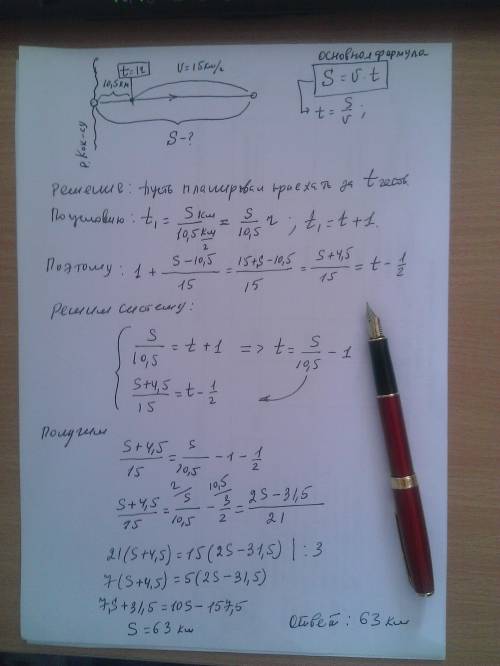 основная формула
t=1ч V=15км/ч S=v·t
10,5км
t=S/v;
S-?
р. Кок-су
Решение: пусть планировал приехать за t часов
По условию: t₁=S км/10,5 км/ч=S/10,5 ч; t₁=t+1.
Поэтому: 1+(S-10,5)/15=(15+S-10,5)/15=(S+4,5)/15=t-1/2
Решим систему:
{ S/10,5=t+1 => t=S/10,5-1
(S+4,5)/15=t-1/2
Получим
(S+4,5)/15=S/10,5-1-1/2
(S+4,5)/15=2/S/10,5-10,5/3/2=(2S-31,5)/21
21(S+4,5)=15(2S-31,5) | :3
7(S+4,5)=5(2S-31,5)
7S+31,5=10S-157,5
S=63 км Ответ: 63 км